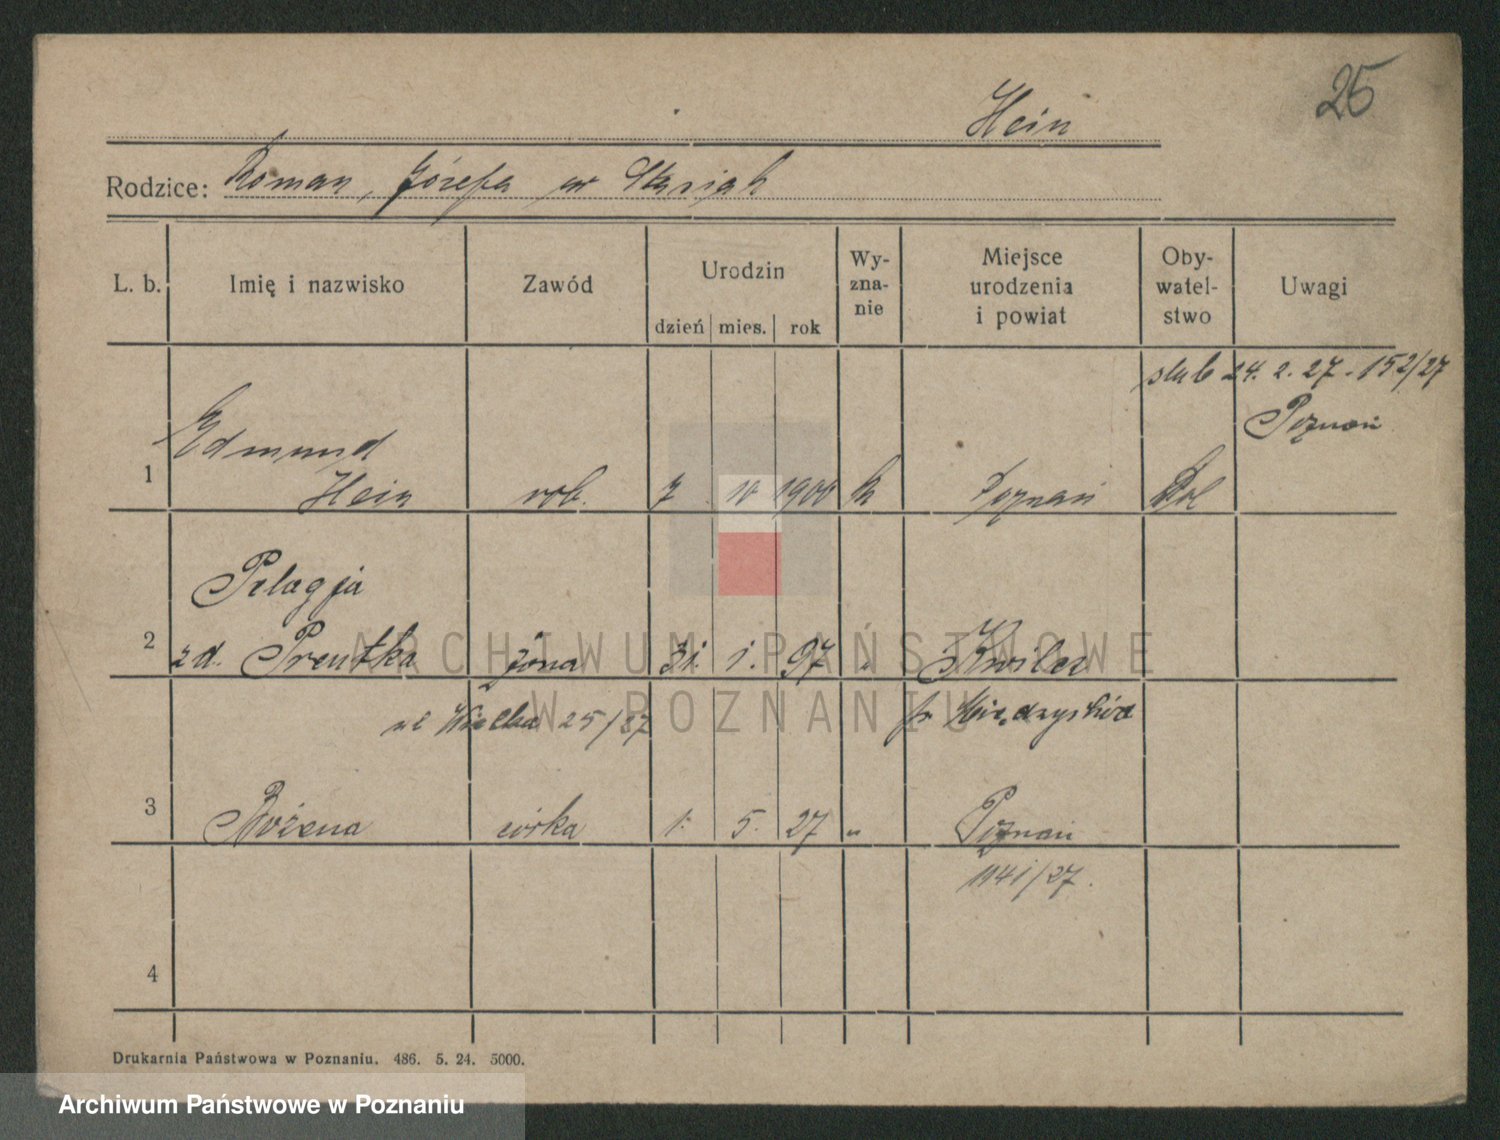 25
Hein
Rodzice: Roman, Józefa
L. b. Imię i nazwisko Zawód Urodzin dzień mies. rok Wy-zna-nie Miejsce urodzenia i powiat Oby-watel-stwo Uwagi
ślub 24. 2. 27 - 152/27
Poznań
Edmund
1 Hein rob. 7 10 1900 k Poznań Pol
Pelagja
2 zd. Prentka żona 31. 1. 97 " Kwilcz
ul Wielka 25/27 p. Międzychód
3 Bożena córka 1. 5. 27 " Poznań
1141/27.
4
Drukarnia Państwowa w Poznaniu. 486. 5. 24. 5000.
ARCHIWUM PAŃSTWOWE
W POZNANIU
Archiwum Państwowe w Poznaniu